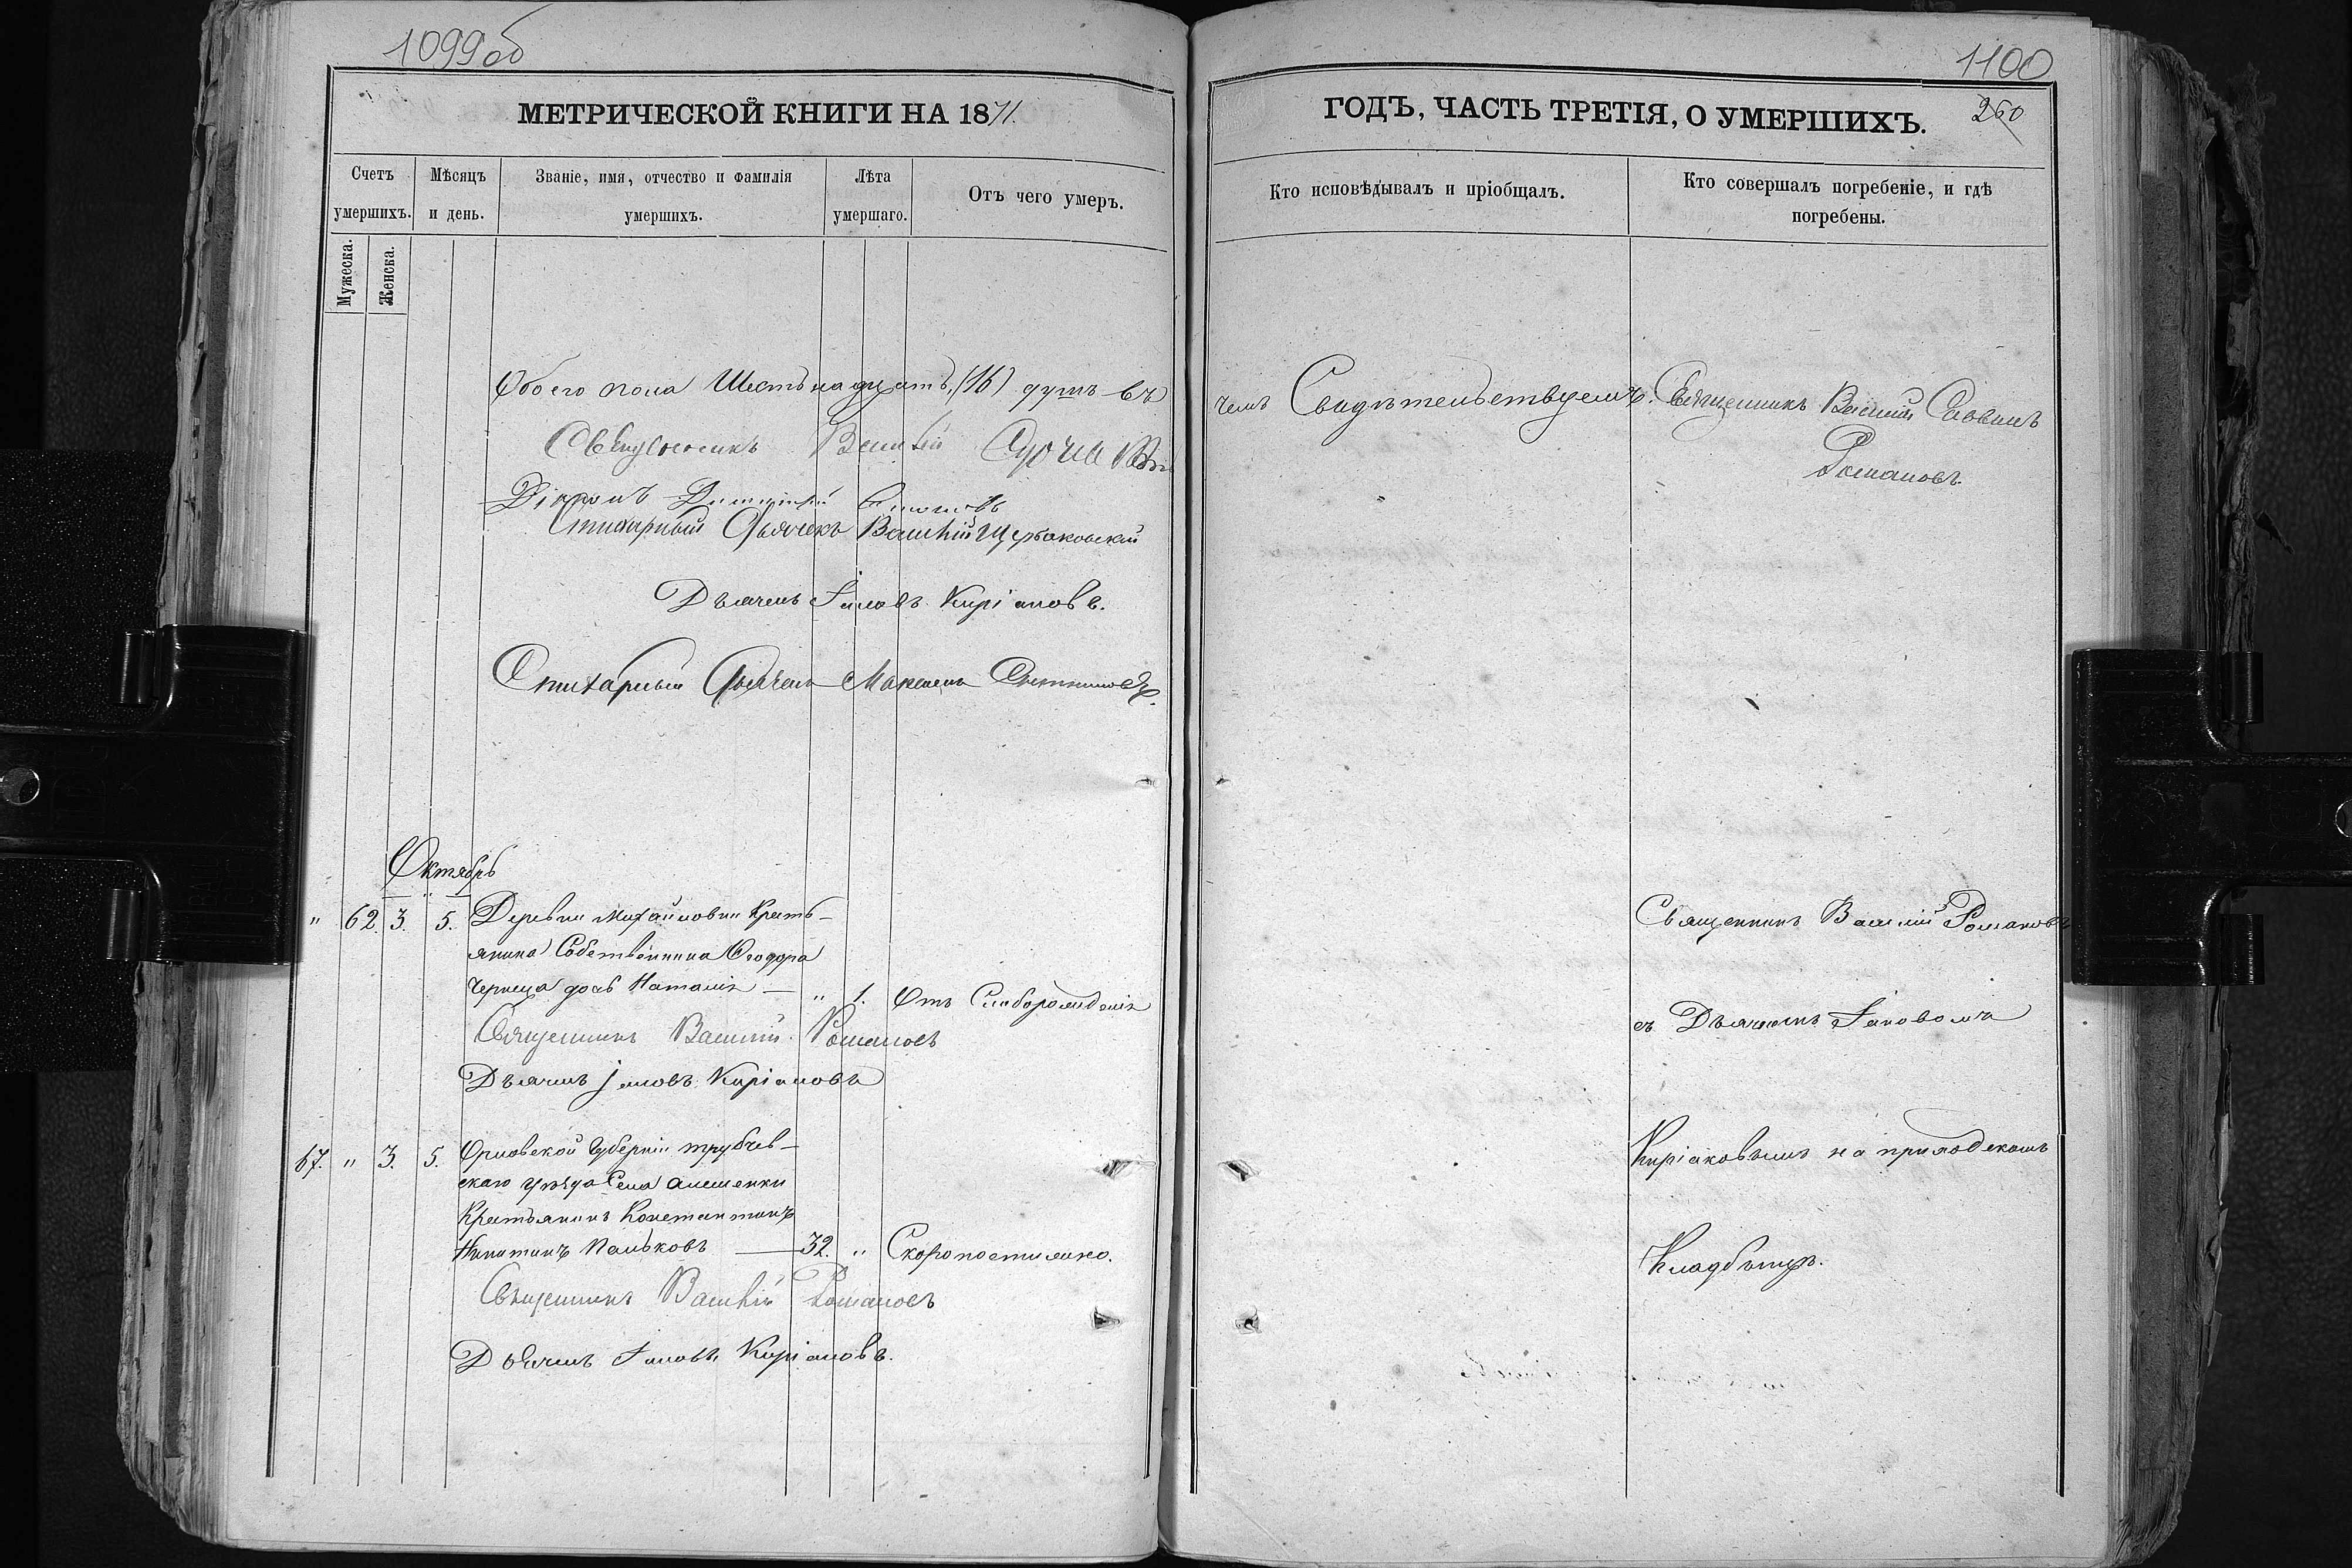 1099об
МЕТРИЧЕСКОЙ КНИГИ НА 1871.
Счетъ умершихъ.
Мѣсяцъ и день.
Званіе, имя, отчество и фамилія умершихъ.
Лѣта умершаго.
Отъ чего умеръ.
Мужеска.
Женска.
Обоего пола Шестьнадцать (16) душъ въ
Священникъ Василій
Діаконъ Димитрій
Стихарный Дьячекъ Василій Щербаковскій
Дьячекъ Іаковъ Киріаковъ.
Стихарный Дьячекъ Максимъ
Октябрь
" 62. 3. 5. Деревни Михайловки Кресть-
янина Собственника Ѳеодора
Чернеца дочь Наталія — " 1. Отъ Слаборожденія
Священникъ Василій Романовъ
Дьячекъ Іаковъ Киріаковъ
67. " 3. 5. Орловской Губерніи трубчев-
скаго уѣзда Села Алешенки
Крестьянинъ Константинъ
Никитинъ Паньковъ — 32. " Скоропостижно.
Священникъ Василій Романовъ
Дьячекъ Іаковъ Киріаковъ.
1100
ГОДЪ, ЧАСТЬ ТРЕТІЯ, О УМЕРШИХЪ.
260
Кто исповѣдывалъ и пріобщалъ.
Кто совершалъ погребеніе, и гдѣ погребены.
чемъ Свидѣтельствуемъ. Священникъ Василій
Романовъ.
Священникъ Василій Романовъ
съ Дьячкомъ Іаковомъ
Киріаковымъ на приходскомъ
Кладбищѣ.